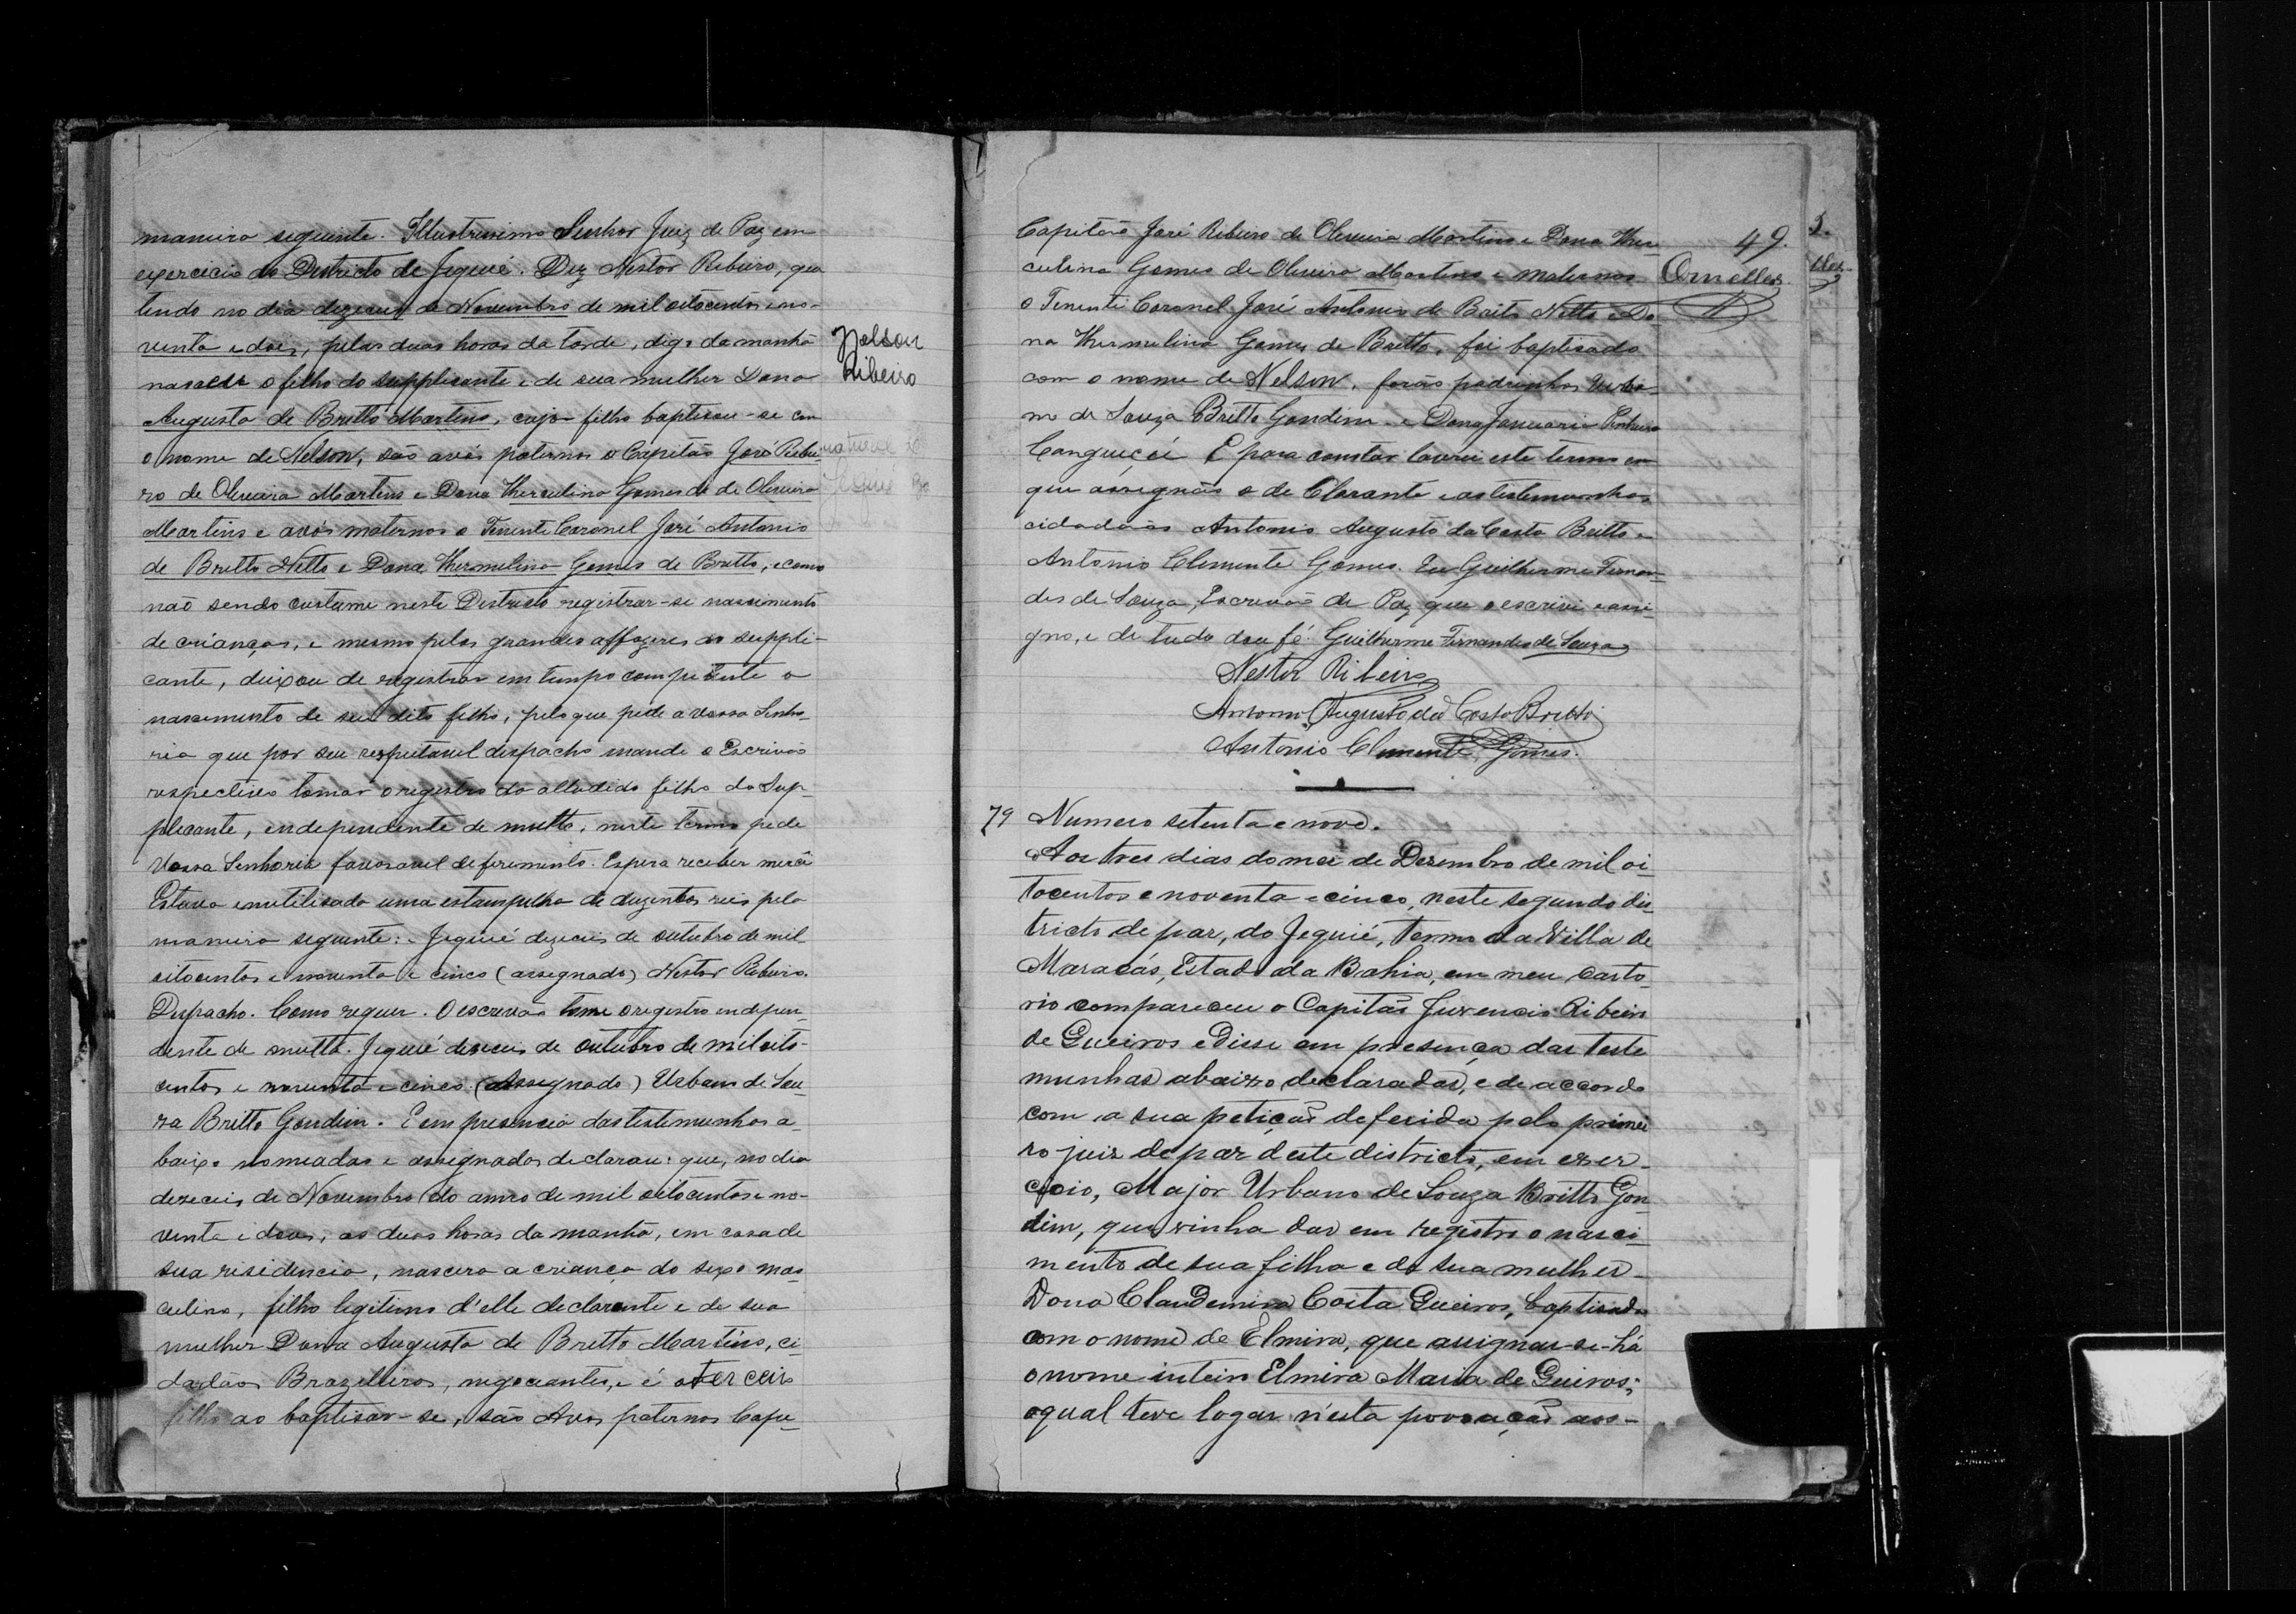 maneira seguinte. Illustrissimo Senhor Juiz de Paz em
exercicio do Districto de Jequié. Diz Nestor Ribeiro, que
tendo no dia dezeceis de Novembro de mil oitocentos e no-
venta e dois, pelas duas horas da tarde, digo da manhã
nasceu o filho do supplicante e de sua mulher Dona
Augusta de Britto Martins, cujo filho baptisou-se com
o nome de Nelson, são avós paternos o Capitão José Ribei-
ro de Oliveira Martins e Dona Herculina Gomes de de Oliveira
Martins e avós maternos o Tenente Coronel José Antonio
de Britto Netto e Dona Hermelina Gomes de Britto, e como
não sendo custume neste Destricto registrar-se nascimento
de crianças, e mesmo pelos grandes affazeres do suppli-
cante, deixou de registrar em tempo competente o
nascimento de seu dito filho, pelo que pede a vossa Senho-
ria que por seu respeitavel despacho mande o Escrivão
respectivo tomar o registro do alludido filho do Sup-
plicante, independente de multa, neste termo pede
Vossa Senhoria favoravel deferimento. Espera receber mercê
Estava inutilisada uma estampilha de duzentos reis pela
maneira seguinte: Jequié dezeceis de outubro de mil
oitocentos e noventa e cinco (assegnado) Nestor Ribeiro.
Despacho. Como requer. O escrivão tome o registro indepen-
dente de multa. Jequié dezeceis de outubro de mil oito-
centos e noventa e cinco. (Assegnado) Urbano de Sou-
za Britto Gondim. E em presencia das testemunhas a-
baixo nomeadas e assegnados declarou: que, no dia
dezeceis de Novembro do anno de mil oitocentos e no-
venta e dous, as duas horas da manhã, em casa de
sua risidencia, nascera a criança do sexo mas-
culino, filho legitimo d'elle declarante e de sua
mulher Dona Augusta de Britto Martins, ci-
dadãos Brazelleiros, negociantes, e é o terceiro
filho ao baptisar-se, são Avos paternos Capi-
Nelson
Ribeiro
Capitão José Ribeiro de Oliveira Martins e Dona Her-
culina Gomes de Oliveira Martins e maternos
o Tenente Coronel José Antonio de Britto Netto e Do-
na Hermelina Gomes de Britto, foi baptisado
com o nome de Nelson, forão padrinhos Urba-
no de Souza Britto Gondim e Dona Januaria Pinheiro
Canguçú E para constar lavrei este termo em
que assegnão o de Clarante e as testemunhas
cidadãos Antonio Augusto da Costa Britto e
Antonio Clemente Gomes. Eu Guilherme Fernan-
des de Souza, Escrivão de Paz que o escrivi e assi-
gno, e de tudo dou fé. Guilherme Fernandes de Souza
Nestor Ribeiro
Antonio Augusto da Costa Britto
Antonio Clemente Gomes.
49.
Ornellas
79 Numero setenta e nove.
Aos tres dias do mez de Dezembro de mil oi
tocentos e noventa e cinco, neste segundo dis-
tricto de paz, do Jequié, termo da Villa de
Maracás, Estado da Bahia, em meu carto-
rio compareceu o Capitão Juvencio Ribeiro
de Gueiros e Disse em presença das teste
munhas abaixo declaradas, e de accordo
com a sua petição deferida pelo primei
ro juiz de paz deste districto, em exer-
cicio, Major Urbano de Souza Britto Gon
dim, que vinha dar em registro o nasci-
mento de sua filha e da sua mulher
Dona Claudemira Costa Gueiros, baptisada
com o nome de Elmira, que assignar-se-há
o nome inteiro Elmira Maria de Gueiros;
o qual teve logar n'esta povoação aos-